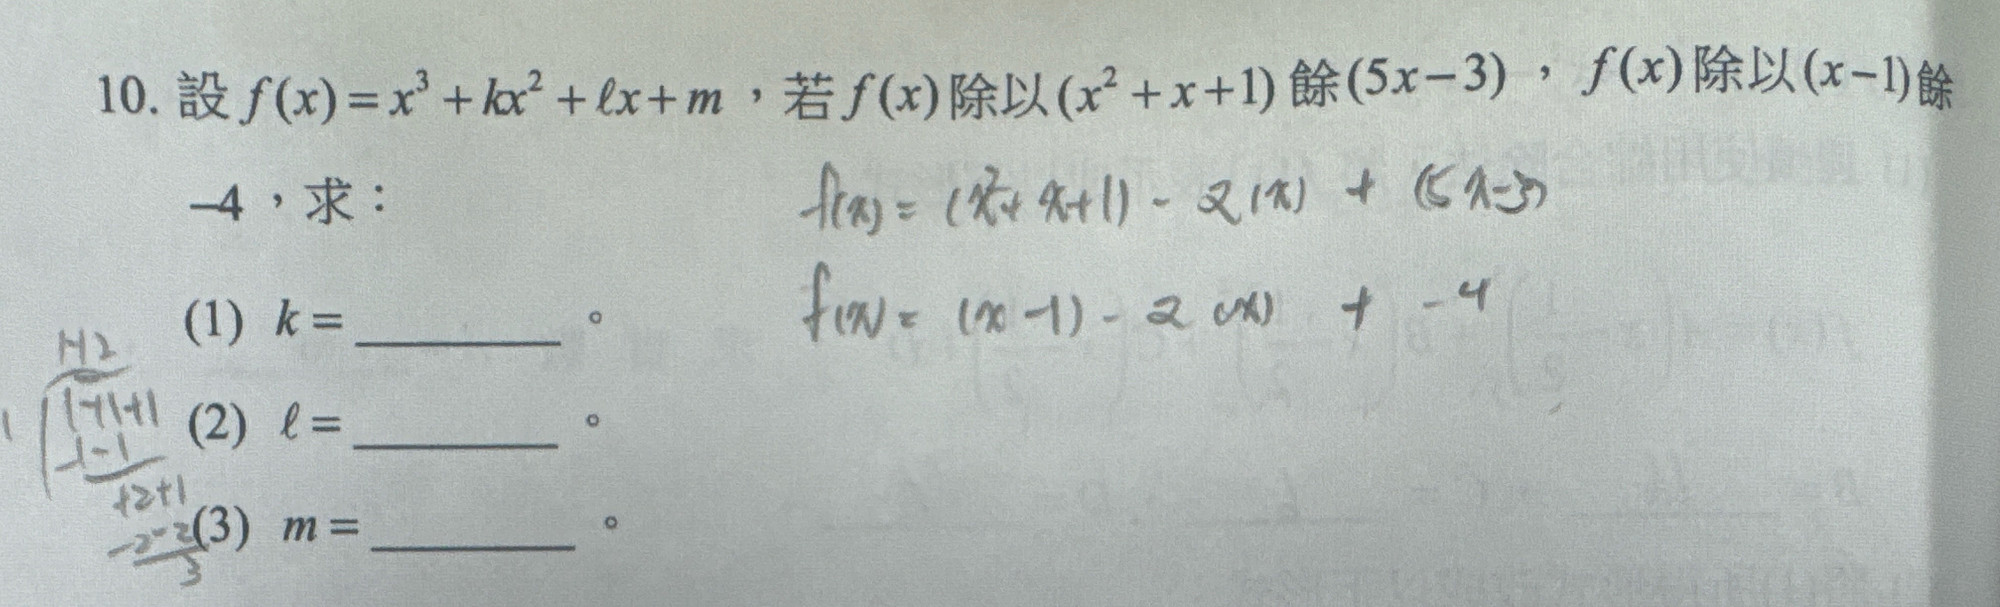 10. 設 f(x)=x³+kx²+ℓx+m，若 f(x) 除以 (x²+x+1) 餘 (5x−3)，f(x) 除以 (x−1) 餘
−4，求：
f(x) = (x²+x+1) - 2(x) + (5x-3)
f(x) = (x-1) - 2(x) + -4
(1) k = ______。
(2) ℓ = ______。
(3) m = ______。
1+2
1 1+1+1
1-1
+2+1
-2-2
3